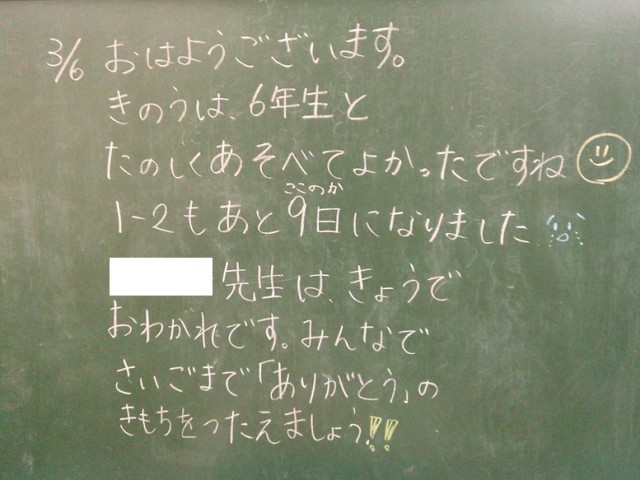 3/6 おはようございます。
きのうは、6年生と
たのしくあそべてよかったですね
ここのか
1-2もあと9日になりました
先生は、きょうで
おわかれです。みんなで
さいごまで「ありがとう」の
きもちをつたえましょう!!